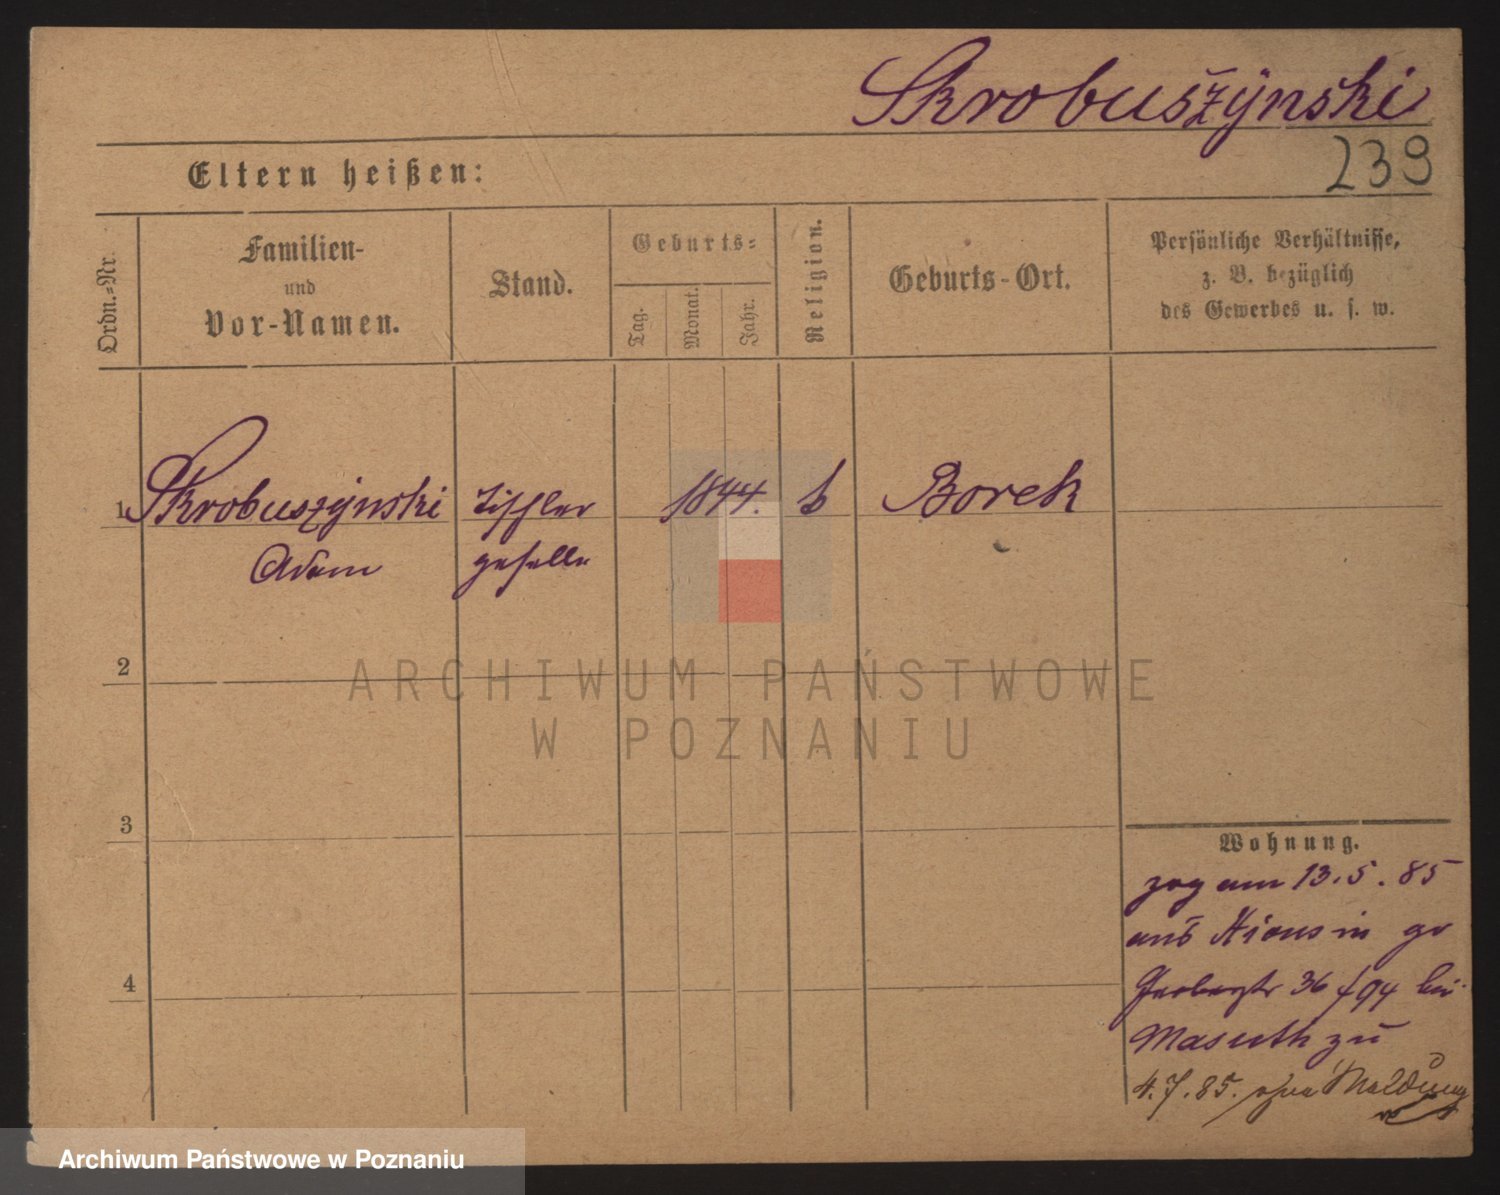 Skrobuszÿnski
239
Eltern heißen:
Ordn.=Nr.
Familien-
und
Vor-Namen.
Stand.
Geburts=
Tag.
Monat.
Jahr.
Religion.
Geburts-Ort.
Persönliche Verhältnisse,
z. B. bezüglich
des Gewerbes u. s. w.
1 Skrobuszÿnski Tischler 1844. k Borek
Adam geselle
2
3
4
Wohnung.
zog am 13.5.85
aus Xions in gr
Gerberstr 36 bei
Masuth zu
4.7.85. ohne Meldung
ARCHIWUM PAŃSTWOWE
W POZNANIU
Archiwum Państwowe w Poznaniu